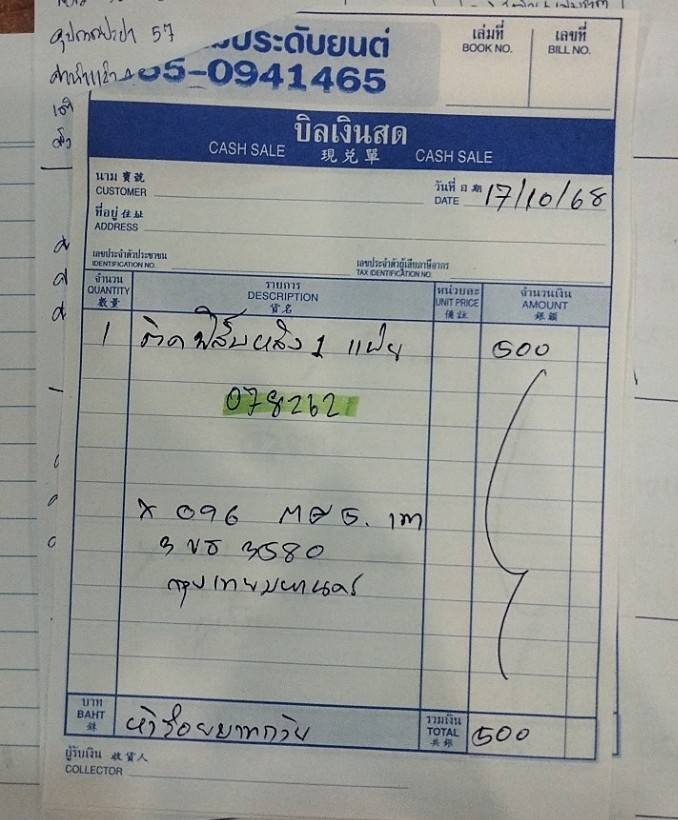 คุปกาณปะปา 57
ประดับยนต์
05-0941465
เล่มที่ เลขที่
BOOK NO. BILL NO.
บิลเงินสด
CASH SALE 現兌單 CASH SALE
นาม 寶號
CUSTOMER
วันที่ 日期
DATE 17/10/68
ที่อยู่ 住址
ADDRESS
เลขประจำตัวประชาชน เลขประจำตัวผู้เสียภาษีอากร
IDENTIFICATION NO. TAX IDENTIFICATION NO.
จำนวน รายการ หน่วยละ จำนวนเงิน
QUANTITY DESCRIPTION UNIT PRICE AMOUNT
數量 貨名 備註 銀額
1 ติดฟิล์มหลัง 1 แผ่น 500
078262
096
3 ขธ 3580
กรุงเทพมหานคร
บาท รวมเงิน
BAHT ห้าร้อยบาทถ้วน TOTAL 500
ผู้รับเงิน 收貨人
COLLECTOR